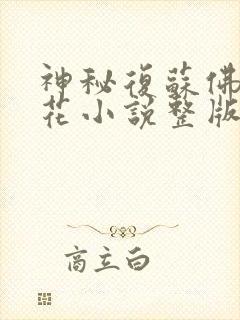 神秘復蘇佛
花小說整版
商立白